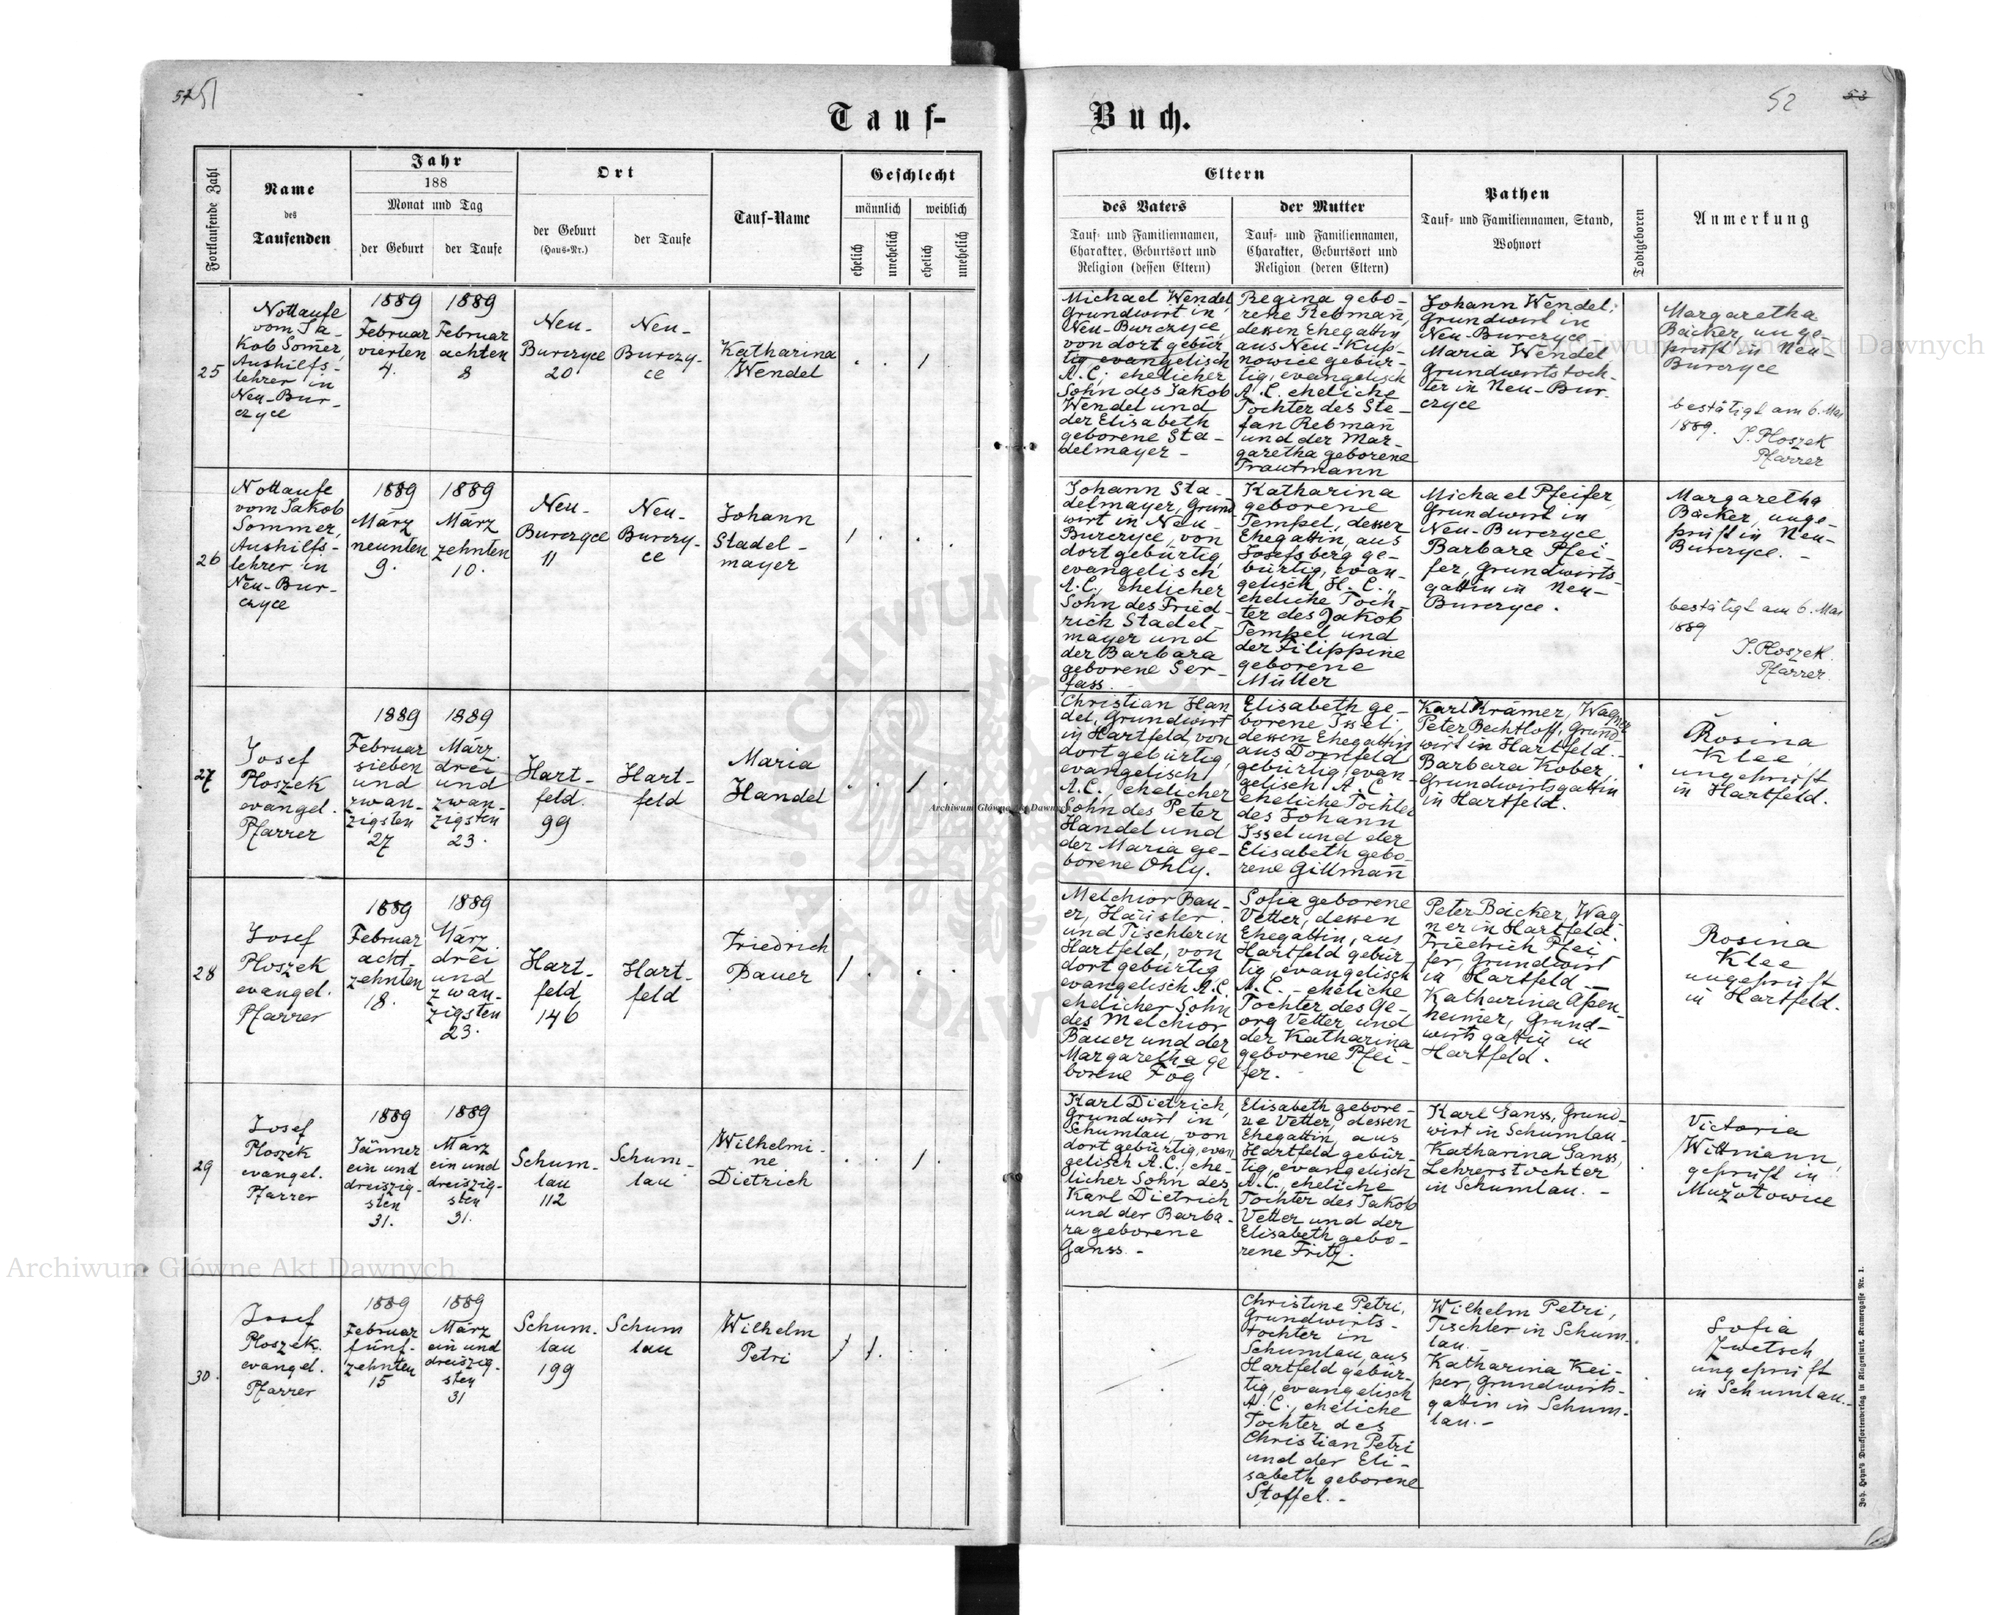 51
Tauf-
Fortlaufende Zahl
Name
des
Taufenden
Jahr
188
Monat und Tag
der Geburt
der Taufe
Ort
der Geburt
(Haus-Nr.)
der Taufe
Tauf-Name
Geschlecht
männlich
weiblich
ehelich
unehelich
ehelich
unehelich
52
53
Buch.
Eltern
des Vaters
Tauf- und Familiennamen,
Charakter, Geburtsort und
Religion (dessen Eltern)
der Mutter
Tauf- und Familiennamen,
Charakter, Geburtsort und
Religion (deren Eltern)
Pathen
Tauf- und Familiennamen, Stand,
Wohnort
Todtgeboren
Anmerkung
25
Nottaufe
vom Ja-
kob Som̄er,
Aushilfs-
lehrer in
Neu-Bur-
czyce
1889
Februar
vierten
4.
1889
Februar
achten
8
Neu-
Burczyce
20
Neu-
Burczy-
ce
Katharina
Wendel
Michael Wendel
Grundwirt in
Neu-Burczyce,
von dort gebür
tig evangelisch
A.C; ehelicher
Sohn des Jakob
Wendel und
der Elisabeth
geborene Sta-
delmayer -
Regina gebo-
rene Rebman̄,
dessen Ehegattin
aus Neu-Kup-
nowice gebür-
tig, evangelisch
A.C. eheliche
Tochter des Ste-
fan Rebman̄
und der Mar-
garetha geborene
Trautmann
Johann Wendel;
Grundwirt in
Neu-Burczyce,
Maria Wendel
Grundwirtstoch-
ter in Neu-Bur-
czyce
Margaretha
Bäcker, unge-
prüft in Neu-
Burczyce
bestätigt am 6. Mai
1889.
J. Ploszek
Pfarrer
26
Nottaufe
vom Jakob
Sommer,
Aushilfs-
lehrer in
Neu-Bur-
czyce
1889
März
neunten
9.
1889
März
zehnten
10.
Neu-
Burczyce
11
Neu-
Burczy-
ce
Johann
Stadel-
mayer
Johann Sta-
delmayer, Grund
wirt in Neu-
Burczyce, von
dort gebürtig,
evangelisch
A.C, ehelicher
Sohn des Fried-
rich Stadel-
mayer und
der Barbara
geborene Ser-
fass.
Katharina
geborene
Tempel, dessen
Ehegattin, aus
Josefsberg ge-
bürtig, evan-
gelisch, H. C.,
eheliche Toch-
ter des Jakob
Tempel und
der Filippine
geborene
Müller
Michael Pfeifer,
Grundwirt in
Neu-Burczyce
Barbara Pfei-
fer, Grundwirts-
gattin in Neu-
Burczyce.
Margaretha
Bäcker, unge-
prüft in Neu-
Burczyce. -
bestätigt am 6. Mai
1889
J. Ploszek.
Pfarrer.
27
Josef
Ploszek
evangel.
Pfarrer
1889
Februar
sieben
und
zwan-
zigsten
27
1889
März
drei
und
zwan-
zigsten
23.
Hart-
feld.
99
Hart-
feld
Maria
Handel
Christian Han
del, Grundwirt
in Hartfeld von
dort gebürtig,
evangelisch
A.C. ehelicher
Sohn des Peter
Handel und
der Maria ge-
borene Ohly.
Elisabeth ge-
borene Issel
dessen Ehegattin
aus Dornfeld
gebürtig, evan-
gelisch, A. C
eheliche Tochter
des Johann
Issel und der
Elisabeth gebo-
rene Gillman̄
Karl Krämer, Wagner
Peter Bechtloff, Grund
wirt in Hartfeld.
Barbara Kober,
Grundwirtsgattin
in Hartfeld.
Rosina
Klee,
ungeprüft
in Hartfeld.
28
Josef
Ploszek
evangel.
Pfarrer
1889
Februar
acht-
zehnten
18.
1889
März
drei
und
zwan-
zigsten
23.
Hart-
feld,
146
Hart-
feld
Friedrich
Bauer
Melchior Bau-
er, Häusler
und Tischler in
Hartfeld, von
dort gebürtig
evangelisch A.C.
ehelicher Sohn
des Melchior
Bauer und der
Margaretha ge
borene Fög
Sofia geborene
Vetter, dessen
Ehegattin, aus
Hartfeld gebür-
tig, evangelisch
A.C. - eheliche
Tochter des Ge-
org Vetter und
der Katharina
geborene Pfei-
fer.
Peter Bäcker, Wag-
ner in Hartfeld.
Friedrich Pfei-
fer, Grundwirt
in Hartfeld -
Katharina Apen-
heimer, Grund-
wirtsgattin in
Hartfeld.
Rosina
Klee
ungeprüft
in Hartfeld.
29
Josef
Ploszek
evangel.
Pfarrer
1889
Jänner
ein und
dreiszig-
sten
31.
1889
März
ein und
dreiszig-
sten
31.
Schum-
lau
112
Schum-
lau
Wilhelmi-
ne
Dietrich
Karl Dietrich,
Grundwirt in
Schumlau, von
dort gebürtig, evan
gelisch A.C., ehe-
licher Sohn des
Karl Dietrich
und der Barba-
ra geborene
Ganss. -
Elisabeth gebore-
ne Vetter, dessen
Ehegattin, aus
Hartfeld gebür-
tig, evangelisch
A.C., eheliche
Tochter des Jakob
Vetter und der
Elisabeth gebo-
rene Fritz.
Karl Ganss, Grund-
wirt in Schumlau -
Katharina Ganss,
Lehrerstochter
in Schumlau. -
Victoria
Wittmann,
geprüft in
Mużołowice
30.
Josef
Ploszek.
evangel.
Pfarrer
1889
Februar
fünf-
zehnten
15
1889
März
ein und
dreiszig-
sten
31
Schum-
lau
199
Schum
lau
Wilhelm
Petri
Christine Petri,
Grundwirts-
tochter in
Schumlau, aus
Hartfeld gebür-
tig, evangelisch
A. C., eheliche
Tochter des
Christian Petri
und der Eli-
sabeth geborene
Stoffel. -
Wilhelm Petri,
Tischler in Schum-
lau. -
Katharina Kei-
per, Grundwirts-
gattin in Schum-
lau. -
Sofia
Zwetsch
ungeprüft
in Schumlau. -
Joh. Heyn's Drucksortenverlag in Klagenfurt, Kramergasse Nr. 1.
Archiwum Główne Akt Dawnych
Archiwum Główne Akt Dawnych
Archiwum Główne Akt Dawnych